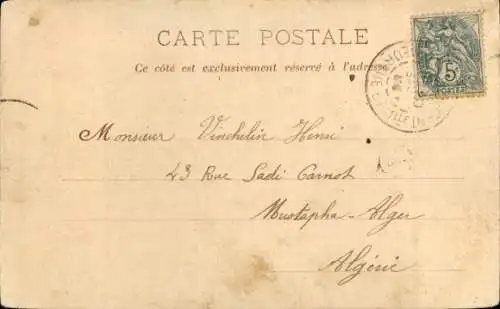 CARTE POSTALE
Ce côté est exclusivement réservé à l'adresse
5
POSTES
Monsieur Vinchelin Henri
43 Rue Sadi Carnot
Mustapha-Alger
Algérie